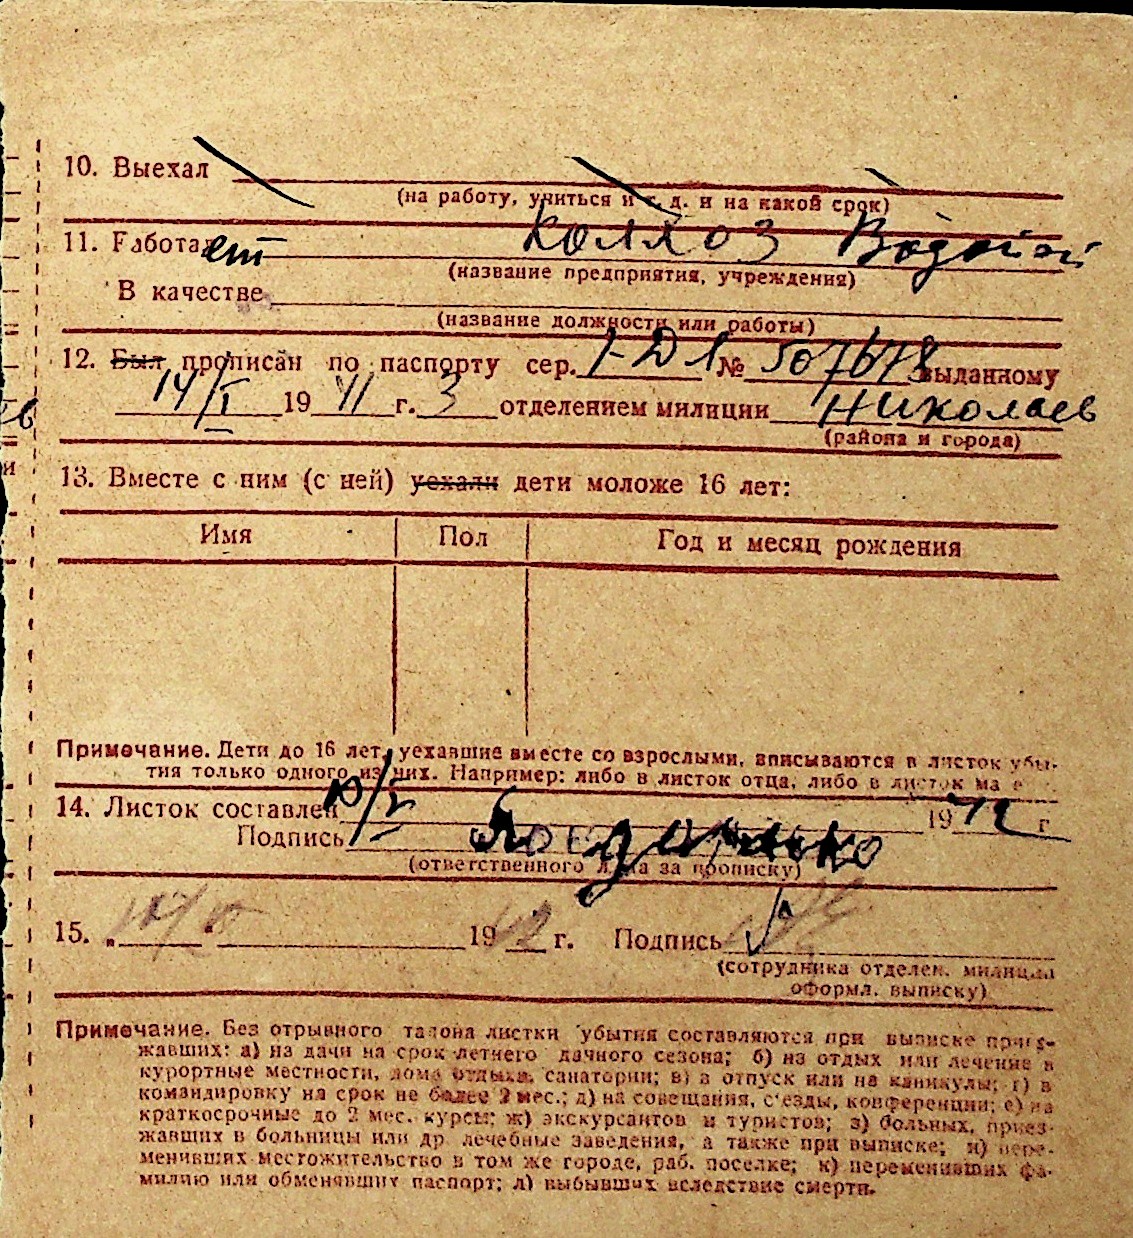 10. Выехал
(на работу, учиться и т. д. и на какой срок)
11. Работает колхоз
(название предприятия, учреждения)
В качестве
(название должности или работы)
12. Был прописан по паспорту сер. № 507678 выданному
14/I 19 г. 3 отделением милиции Николаев
(района и города)
13. Вместе с ним (с ней) уехали дети моложе 16 лет:
Имя Пол Год и месяц рождения
Примечание. Дети до 16 лет, уехавшие вместе со взрослыми, вписываются в листок убы-
тия только одного из них. Например: либо в листок отца, либо в листок ма
14. Листок составлен 10/I 1972 г
Подпись
(ответственного лица за прописку)
15. „ “ 19 г. Подпись
(сотрудника отделен. милиции
оформл. выписку)
Примечание. Без отрывного талона листки убытия составляются при выписке приез-
жавших: а) на дачи на срок летнего дачного сезона; б) на отдых или лечение в
курортные местности, дома отдыха, санатории; в) в отпуск или на каникулы; г) в
командировку на срок не более 2 мес.; д) на совещания, съезды, конференции; е) на
краткосрочные до 2 мес. курсы; ж) экскурсантов и туристов; з) больных, приез-
жавших в больницы или др. лечебные заведения, а также при выписке; и) пере-
менивших местожительство в том же городе, раб. поселке; к) переменивших фа-
милию или обменявших паспорт; л) выбывших вследствие смерти.